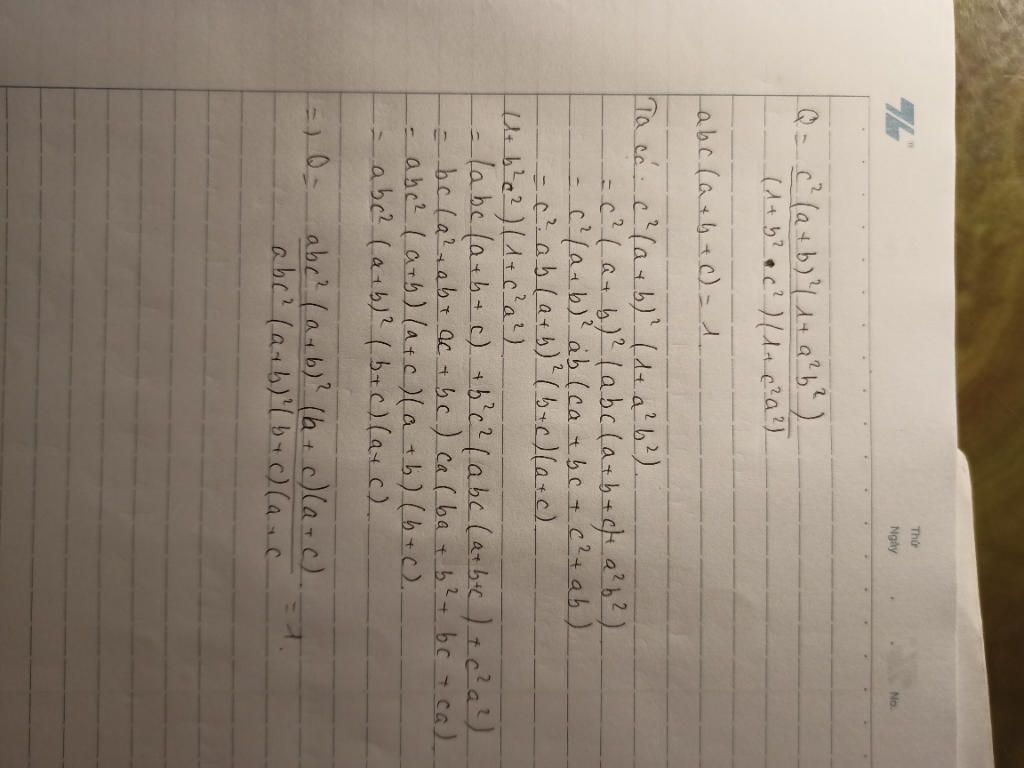 Thứ
Ngày
No.
Q = c²(a+b)²(1+a²b²)
(1+b²•c²)(1+c²a²)
abc(a+b+c)=1
Ta có: c²(a+b)²(1+a²b²)
= c²(a+b)²(abc(a+b+c)+a²b²)
= c²(a+b)² ab(ca+bc+c²+ab)
= c² ab(a+b)²(b+c)(a+c)
(1+b²c²)(1+c²a²)
= (abc(a+b+c)+b²c²(abc(a+b+c)+c²a²)
= bc(a²+ab+ac+bc)ca(ba+b²+bc+ca)
= abc²(a+b)(a+c)(a+b)(b+c)
= abc²(a+b)²(b+c)(a+c)
=) Q = abc²(a+b)²(b+c)(a+c) = 1.
abc²(a+b)²(b+c)(a+c